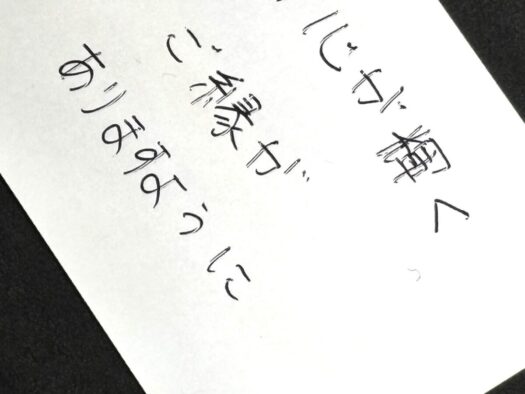 心が輝く
ご縁が
ありますように